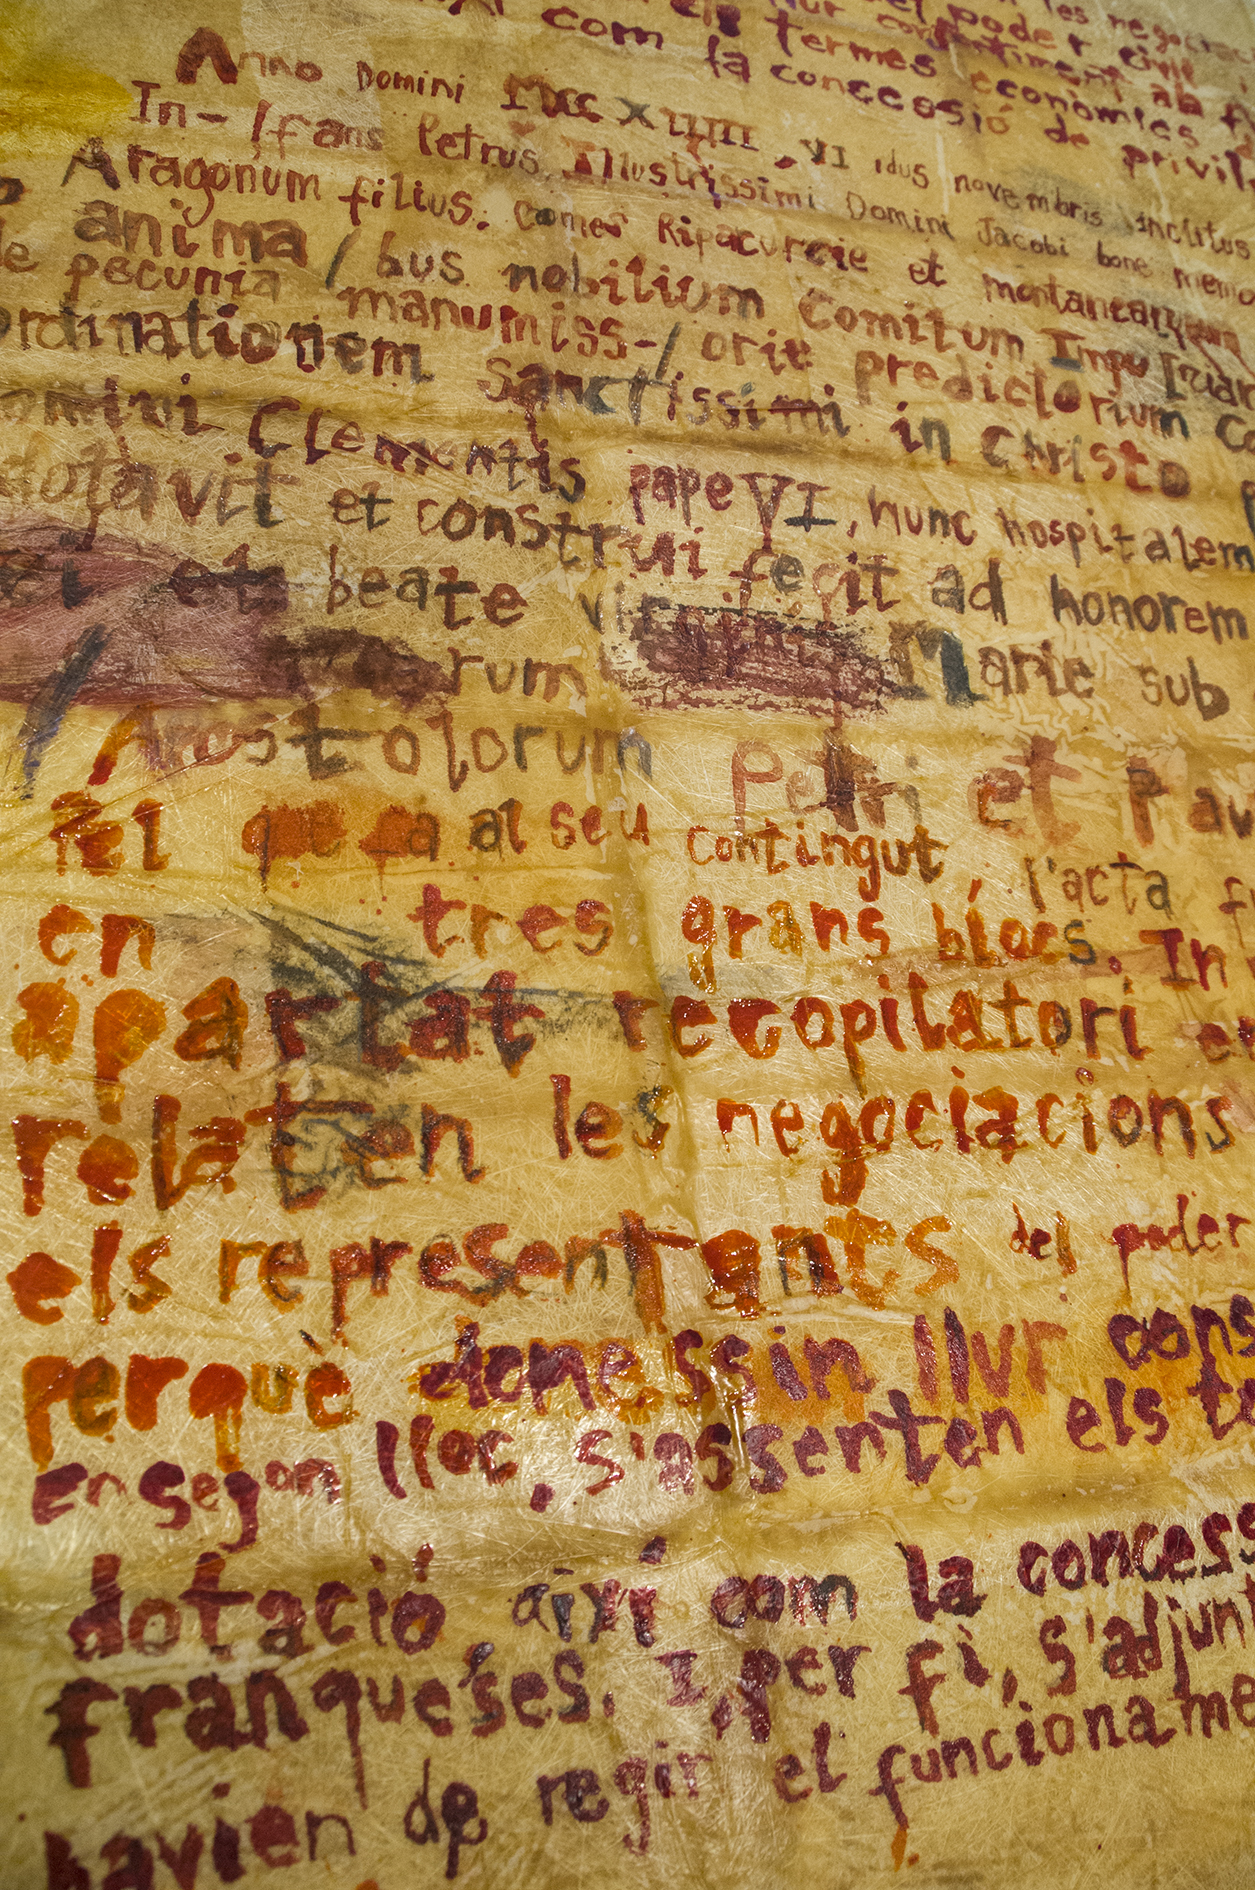 les negociac
del poder civil
llur consentiment
els termes econòmics
com la conccesió de privil
Anno Domini MCCCXLIIII, VI idus novembris inclitus
In-/fans Petrus, Illustrissimi Domini Jacobi bone memo
Aragonum filius, comes Ripacurcie et montanearum
anima/bus nobilium Comitum Impu
de pecunia manumiss-/orie predictorium
ordinationem Sanctissimi in Christo
omini Clementis pape VI, nunc hospitalem
dotavit et construi fecit ad honorem
et beate virginis Marie sub
rum
/Apostolorum Petri et Pau
Pel que fa al seu contingut, l'acta
en tres grans blocs. In
apartat recopilatori
relaten les negociacions
els representants del poder
perquè donessin llur cons
En segon lloc, s'assenten els te
dotació, aixi com la concess
franqueses. I, per fi, s'adjunt
havien de regir el funcioname